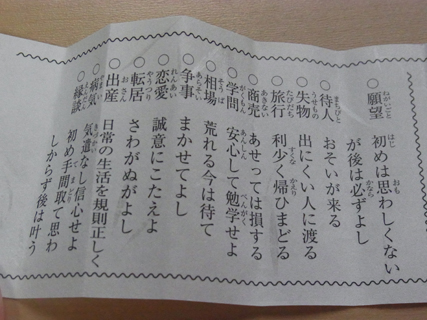 ○願望 初めは思わしくない
が後は必ずよし
○待人 おそいが来る
○失物 出にくい人に渡る
○旅行 利少く帰ひまどる
○商売 あせっては損する
○学問 安心して勉学せよ
○相場 荒れる今は待て
○争事 まかせてよし
○恋愛 誠意にこたえよ
○転居 さわがぬがよし
○出産 日常の生活を規則正しく
○病気 気遣なし信心せよ
○縁談 初め手間取て思わ
しからず後は叶う